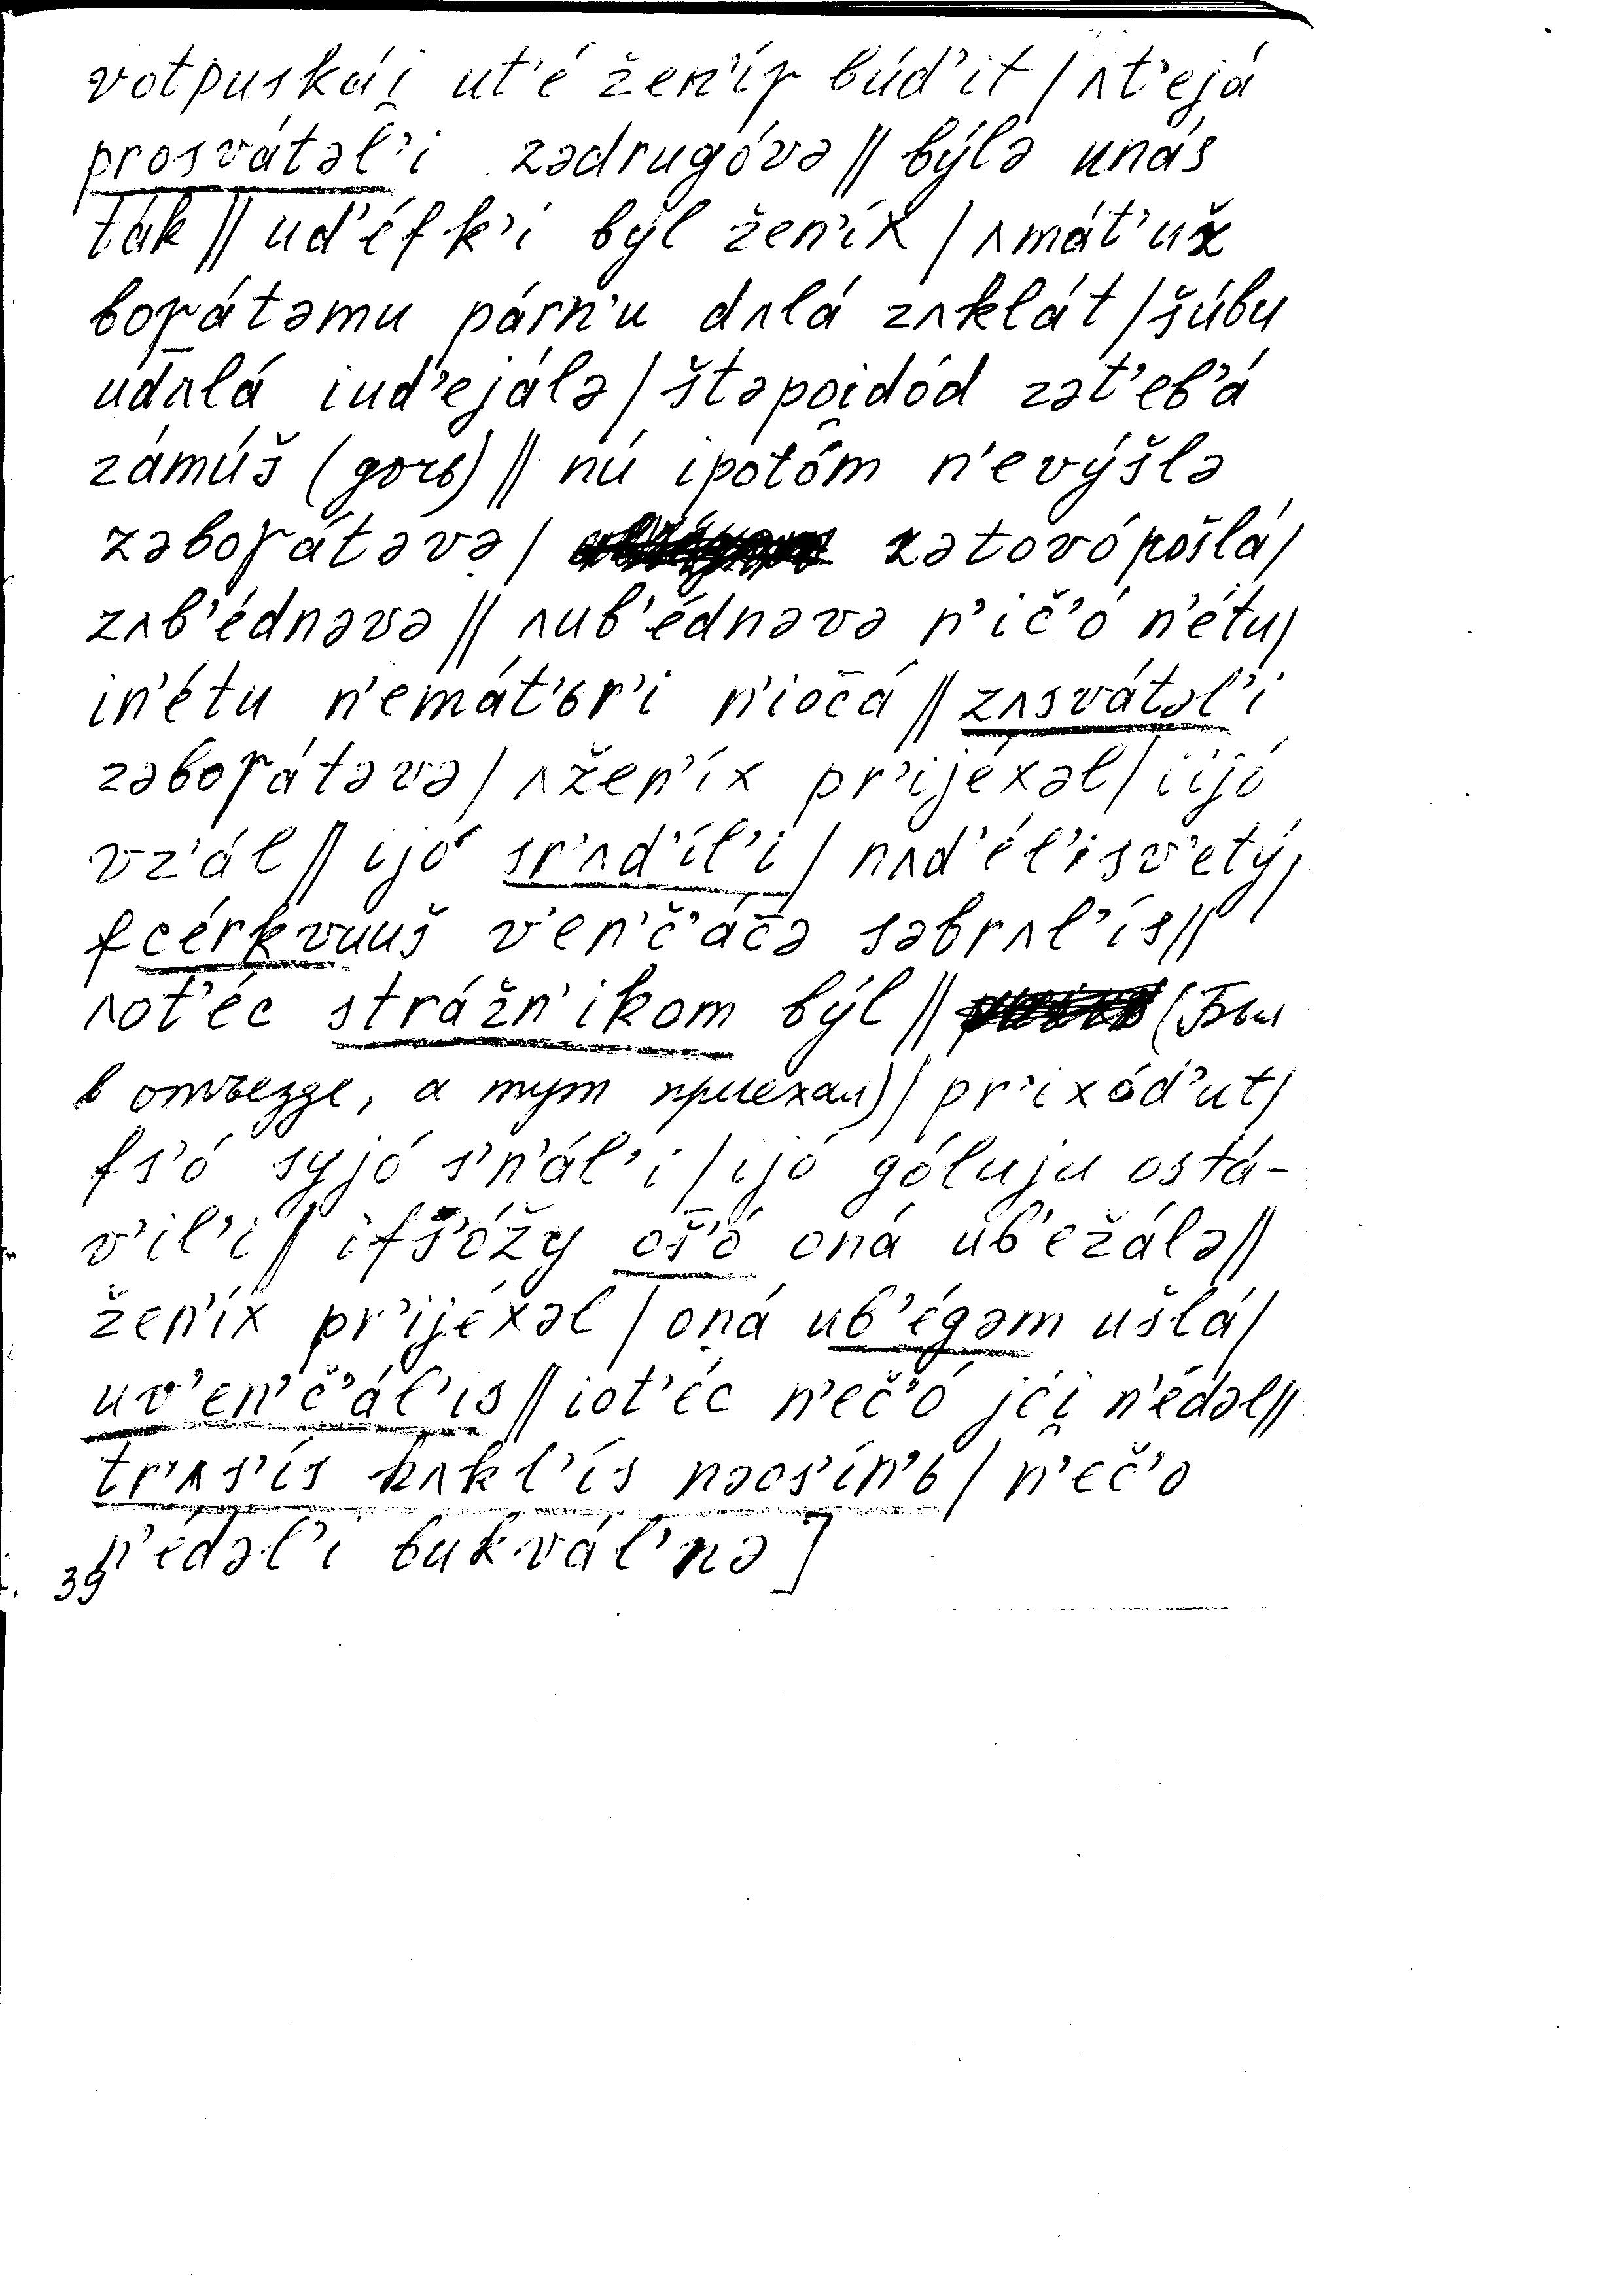 votpuskái̯ ut’é žen’íɣ búd’it / ʌt’ejá
prosvátəl’i zədrugóvə // býlə unás
ták // ud’éfk’i býl žen’íx / ʌmát’už
boɣátəmu párn’u dʌlá zʌklát / šúbu
udʌlá iud’ejálə / štəpoi̯dód zət’eb’á
zámúš (дочь) // nú ipotóm n’evýšlə
zəboɣátəvə / zətovó pošlá /
zʌb’édnəvə // ʌub’édnəvə n’ič’ó n’étu /
in’étu n’emát’ьr’i n’ioc̄á // zʌsvátəl’i
zəboɣátəvə / ʌžen’íx pr’ijéxəl / iijó
vz’ál // ijó sr’ʌd’íl’i / nʌd’él’isv’etý /
fcérkvuuš v’en’č’ác̄ə səbrʌl’ís //
ʌot’éc strážn’ikom býl // (Был
в отъезде, а тут приехал) / pr’ixód’ut /
fs’ó syjó s’n’ál’i / ijó góluju ostá-
v’il’i // ifs’óžy oš̄’ó oná ub’ežálə //
žen’íx pr’ijéxəl / oná ub’égəm ušlá /
uv’en’č’ál’is // iot’éc n’eč’ó jéi̯ n’édəl //
tr’ʌs’ís kʌkl’ís nəos’ín’ь / n’eč’o
n’édəl’i bukvál’nə ]
39